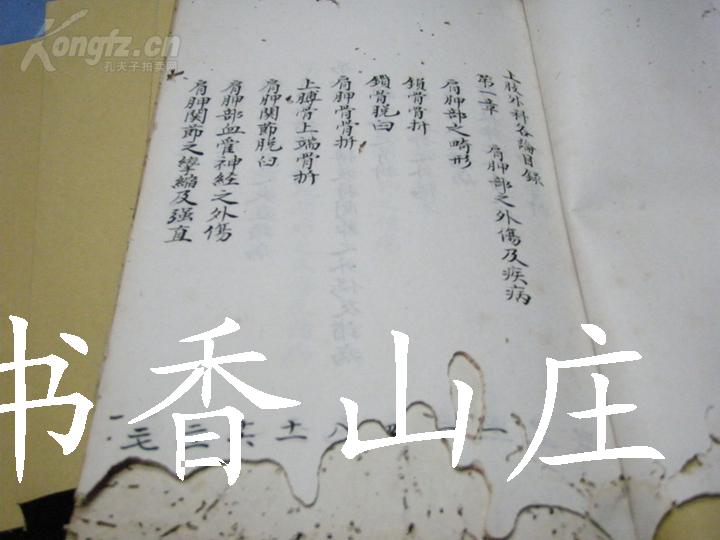 上肢外科各論目録
第一章 肩胛部之外傷及疾病
肩胛部之畸形
鎖骨骨折
鎖骨脱臼
肩胛骨骨折
上膊骨上端骨折
肩胛関節脱臼
肩胛部血管神経之外傷
肩胛関節之攣縮及强直
一
八
十一
Kongfz.cn
孔夫子拍卖网
书香山庄